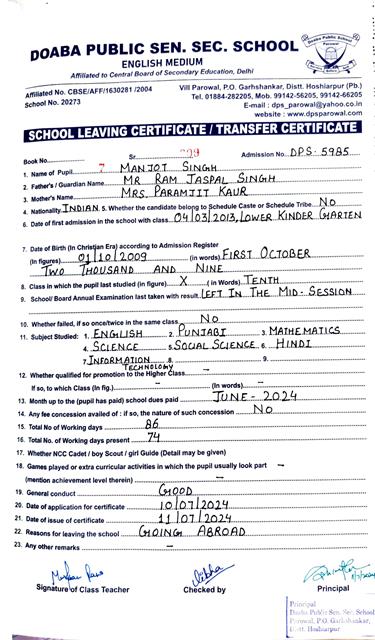 DOABA PUBLIC SEN. SEC. SCHOOL
ENGLISH MEDIUM
Affiliated to Central Board of Secondary Education, Delhi
Doaba Public School
Parowal
Affiliated No. CBSE/AFF/1630281 /2004
School No. 20273
Vill Parowal, P.O. Garhshankar, Distt. Hoshiarpur (Pb.)
Tel. 01884-282205, Mob. 99142-56205, 99142-66205
E-mail : dps_parowal@yahoo.co.in
website : www.dpsparowal.com
SCHOOL LEAVING CERTIFICATE / TRANSFER CERTIFICATE
Book No. 7 Sr. 399 Admission No. DPS-5985
1. Name of Pupil MANJOT SINGH
2. Father's / Guardian Name MR RAM JASPAL SINGH
3. Mother's Name MRS. PARAMJIT KAUR
4. Nationality INDIAN 5. Whether the candidate belong to Schedule Caste or Schedule Tribe NO
6. Date of first admission in the school with class 04/03/2013, LOWER KINDER GARTEN
7. Date of Birth (In Christian Era) according to Admission Register
(In figures) 01/10/2009 (in words) FIRST OCTOBER
TWO THOUSAND AND NINE
8. Class in which the pupil last studied (in figure) X (in Words) TENTH
9. School/ Board Annual Examination last taken with result LEFT IN THE MID-SESSION
10. Whether failed, if so once/twice in the same class NO
11. Subject Studied: 1. ENGLISH 2. PUNJABI 3. MATHEMATICS
4. SCIENCE 5. SOCIAL SCIENCE 6. HINDI
7. INFORMATION TECHNOLOGY 8. 9.
12. Whether qualified for promotion to the Higher Class –
If so, to which Class (In fig.) – (In words) –
13. Month up to the (pupil has paid) school dues paid JUNE-2024
14. Any fee concession availed of : if so, the nature of such concession NO
15. Total No of Working days 86
16. Total No. of Working days present 74
17. Whether NCC Cadet / boy Scout / girl Guide (Detail may be given)
18. Games played or extra curricular activities in which the pupil usually look part –
(mention achievement level therein) –
19. General conduct GOOD
20. Date of application for certificate 10/07/2024
21. Date of issue of certificate 11/07/2024
22. Reasons for leaving the school GOING ABROAD
23. Any other remarks –
Signature of Class Teacher Checked by Principal
Principal
Doaba Public Sen. Sec. School
Parowal, P.O. Garhshankar,
Distt. Hoshiarpur